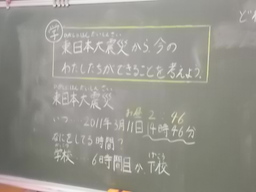 学
ひがしにほんだいしんさい
東日本大震災から、今の
わたしたちができることを考えよう。
東日本大震災
いつ… 2011年3月11日 14時46分
2 46
なにをしてる時間?
学校 6時間目か下校